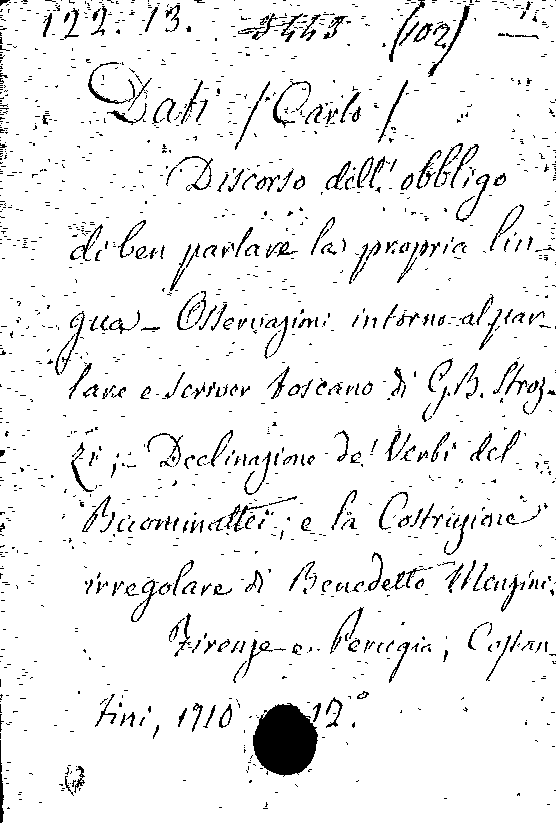 122. 13. 3443 (102)
Dati / Carlo /
Discorso dell' obbligo
di ben parlare la propria lin-
gua - Osservazioni intorno al par-
lare e scriver toscano di G.B. Stroz-
zi; - Declinazione de' Verbi del
Buommattei; e la Costruzione
irregolare di Benedetto Menzini.
Firenze e Perugia, Costan-
tini, 1710 12.°